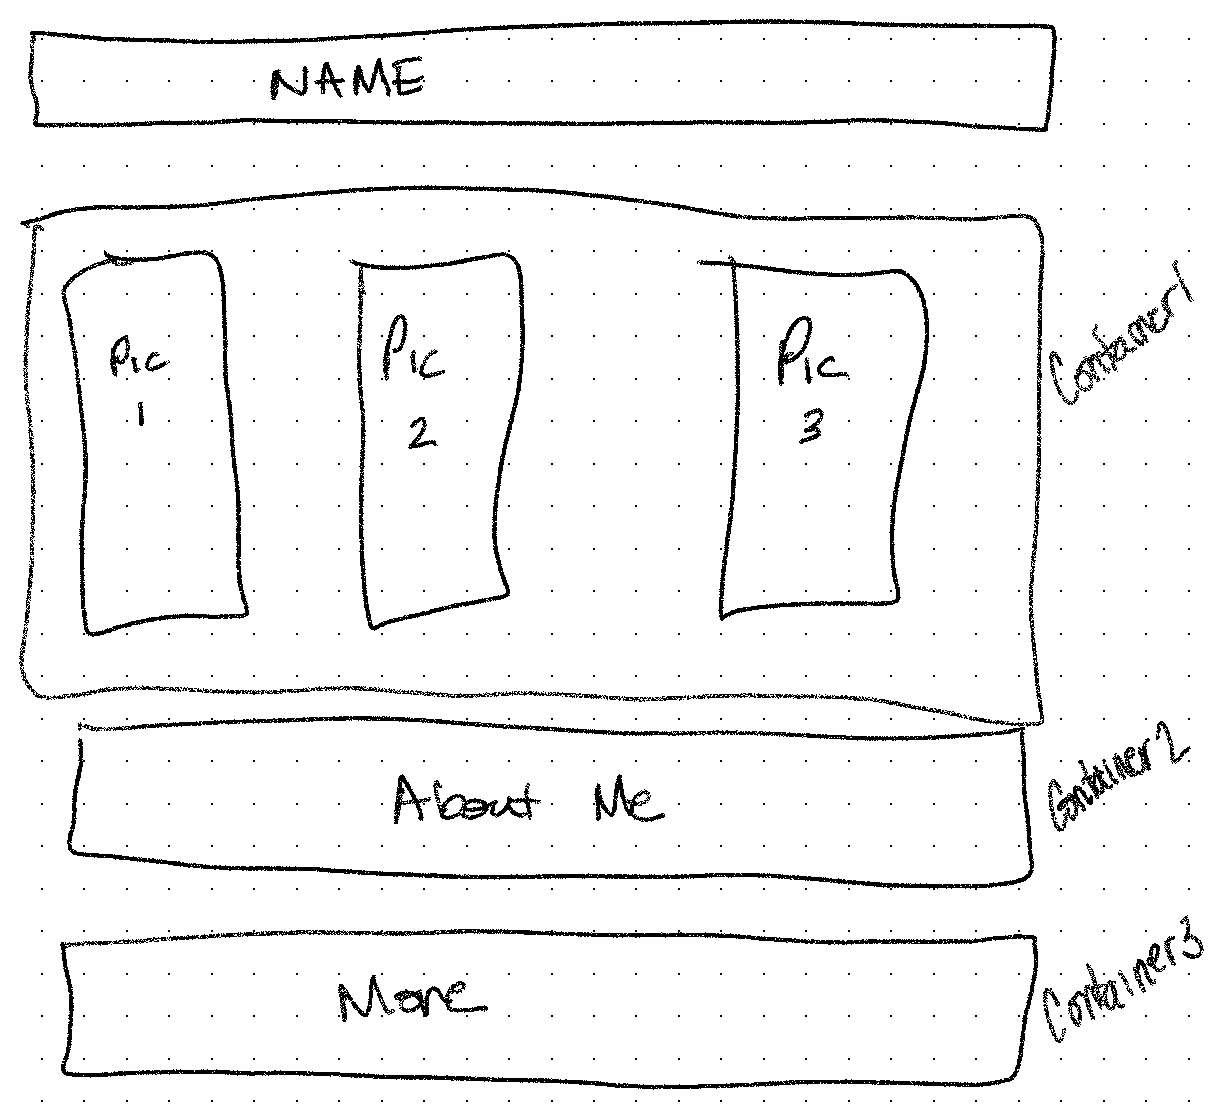 NAME
Pic
1
Pic
2
Pic
3
Container 1
About Me
Container 2
More
Container 3